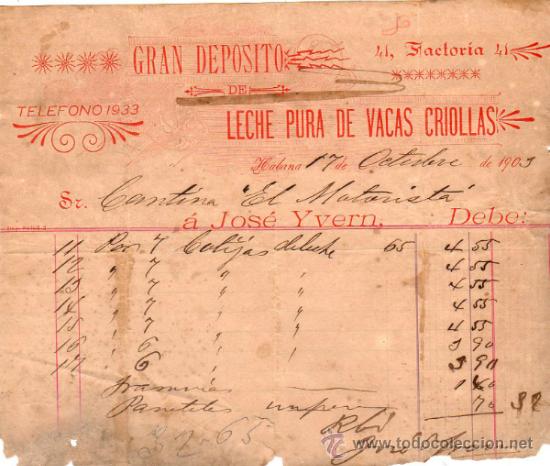 GRAN DEPÓSITO
41, Factoria 41
DE
TELEFONO 1933
LECHE PURA DE VACAS CRIOLLAS
Habana 17 de Octubre de 1903
Sr. Cantina "El Motorista"
á José Yvern, Debe:
11 Por 7 Botijas de leche 65 4 55
12 " 7 " " 4 55
13 " 7 " " 4 55
14 " 7 " " 4 55
15 " 7 " " 4 55
16 " 6 " 3 90
17 " 6 " 3 90
70 32
32-65
todocoleccion